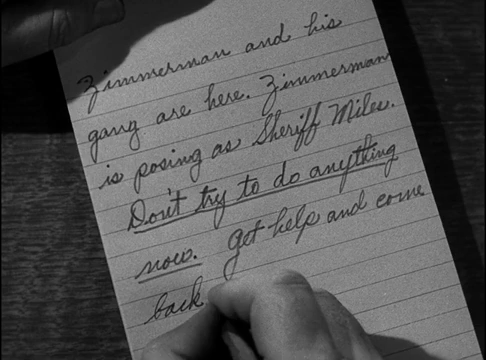 Zimmerman and his
gang are here. Zimmerman
is posing as Sheriff Miles.
Don't try to do anything
now. Get help and come
back